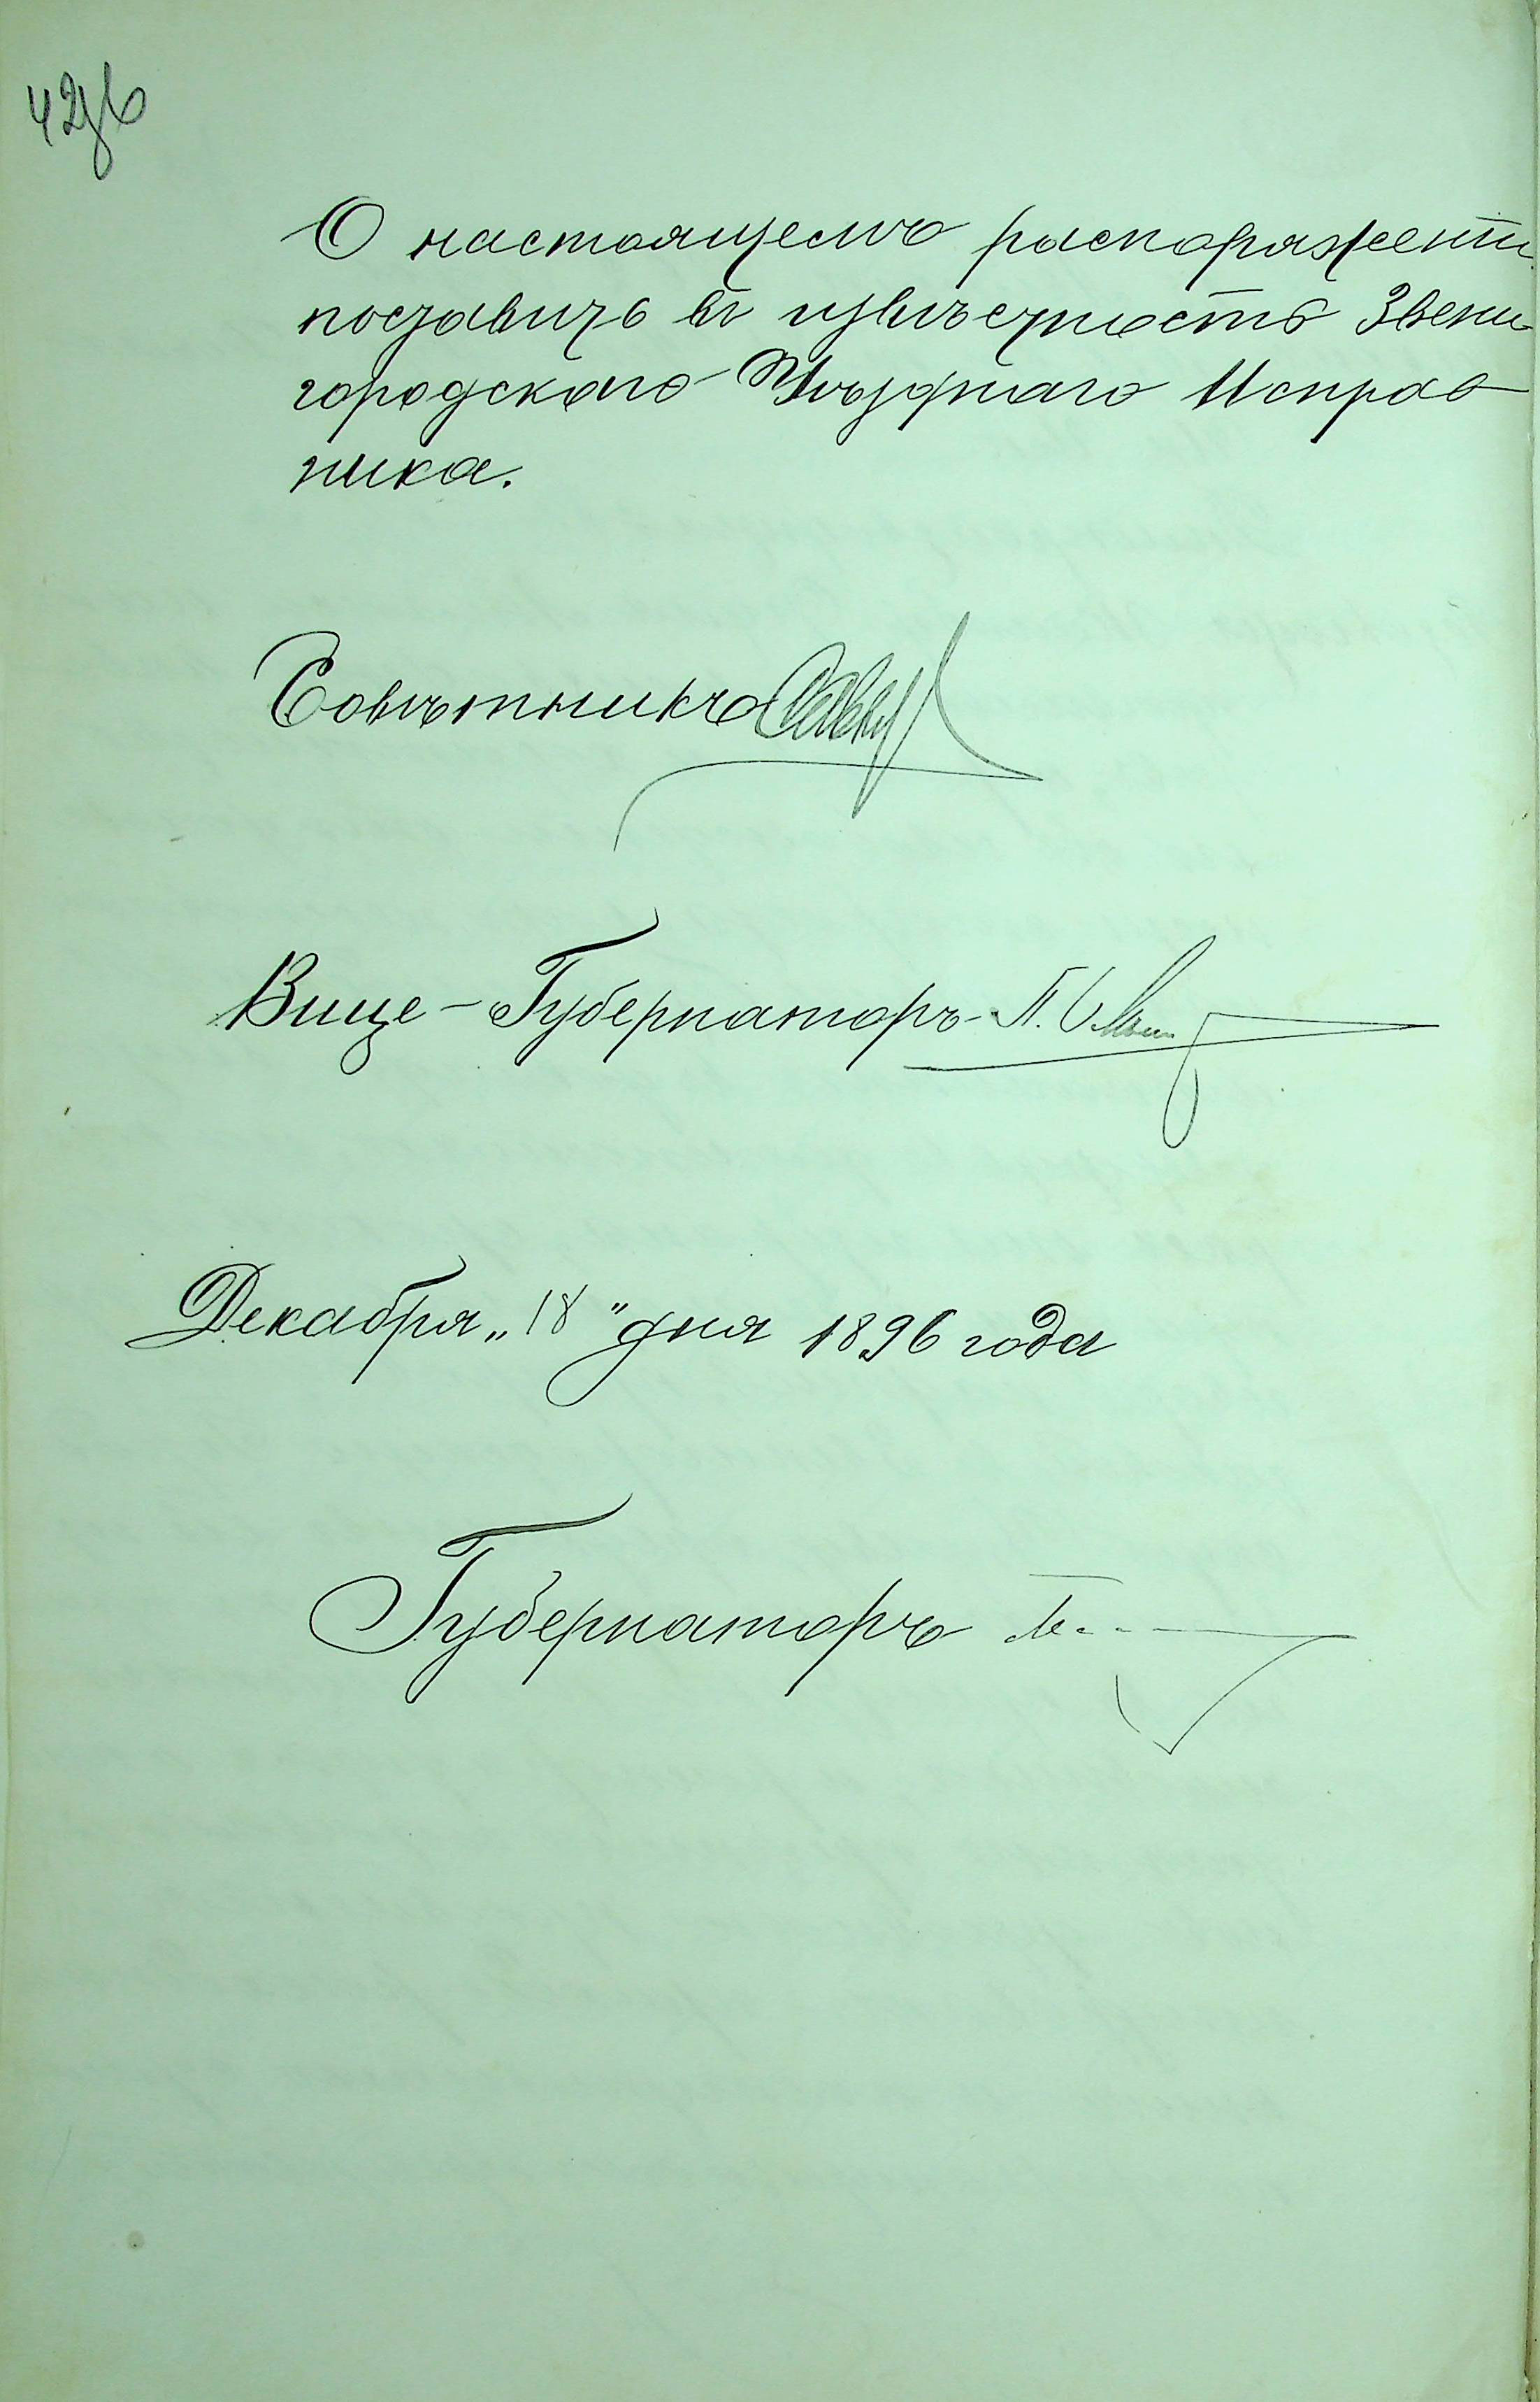 О настоящемъ распоряженіи
поставить въ извѣстность Звени
городскаго Уѣзднаго Исправ
ника.
Совѣтникъ
Вице-Губернаторъ
Декабря „18" дня 1896 года
Губернаторъ